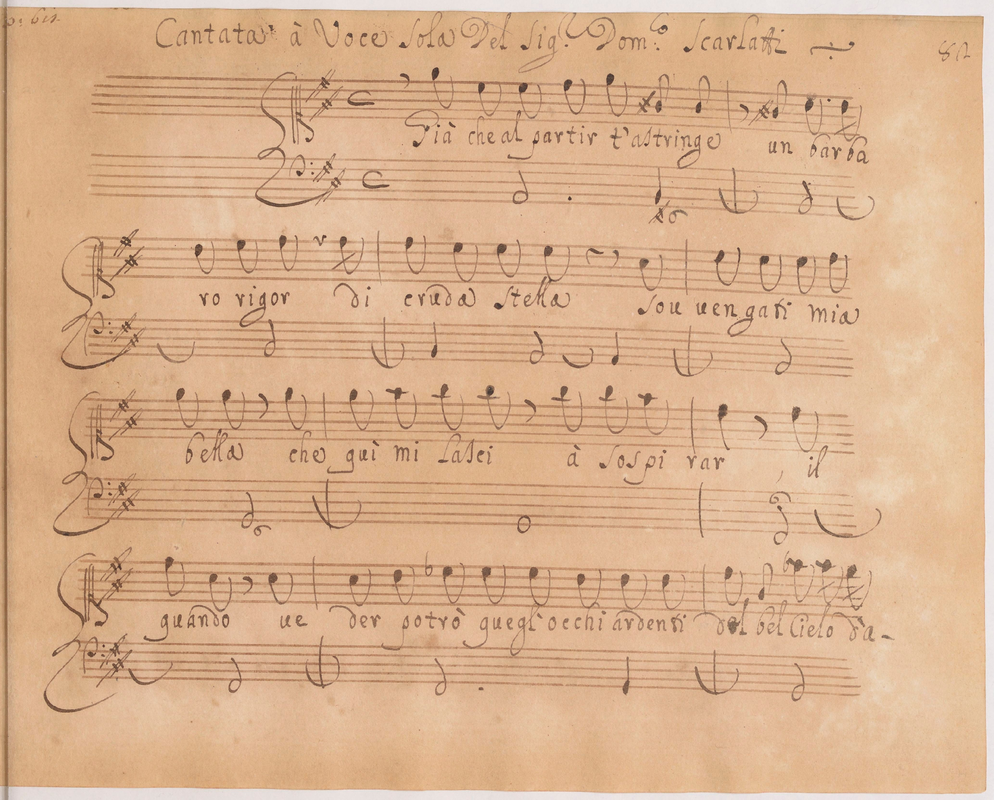 Cantata à Voce Sola Del Sig.r Dom.co Scarlatti
82
Già che al partir t'astringe un barba
ro rigor di cruda stella sou uengati mia
bella che qui mi lasci à sospi rar il
quando ue der potrò quegl'occhi ardenti del bel Cielo d'a-